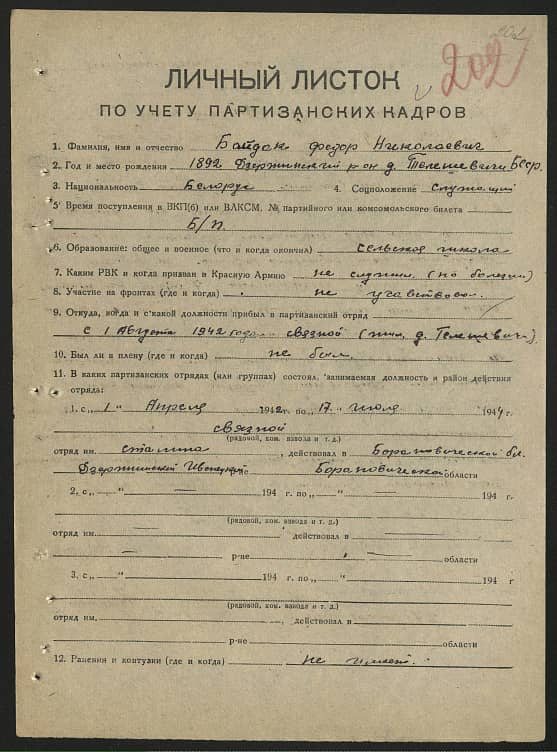 202
202
ЛИЧНЫЙ ЛИСТОК
ПО УЧЕТУ ПАРТИЗАНСКИХ КАДРОВ
1. Фамилия, имя и отчество Байдак Федор Николаевич
2. Год и место рождения 1892 Дзержинский р-он д. Телешевичи Бсср.
3. Национальность Белорус 4. Соцположение служащий
5. Время поступления в ВКП(б) или ВЛКСМ, № партийного или комсомольского билета
Б/П.
6. Образование: общее и военное (что и когда окончил) сельская школа
7. Каким РВК и когда призван в Красную Армию не служил (по болезни)
8. Участие на фронтах (где и когда) не участвовал.
9. Откуда, когда и с какой должности прибыл в партизанский отряд
с 1 Августа 1942 года связной (жил д. Телешевичи)
10. Был ли в плену (где и когда) не был.
11. В каких партизанских отрядах (или группах) состоял, занимаемая должность и район действия
отряда:
1. с „1" Апреля 1942 г. по „17" июля 1944 г.
связной
(рядовой, ком. взвода и т. д.)
отряд им. сталина, действовал в Барановической бл.
Дзержинский Ивенецкий р-не Барановической области
2. с „ " 194 г. по „ " 194 г.
(рядовой, ком. взвода и т. д.)
отряд им. , действовал в
р-не области
3. с „ " 194 г. по „ " 194 г
(рядовой, ком. взвода и т. д.)
отряд им. , действовал в
р-не области
12. Ранения и контузии (где и когда) не имеет.